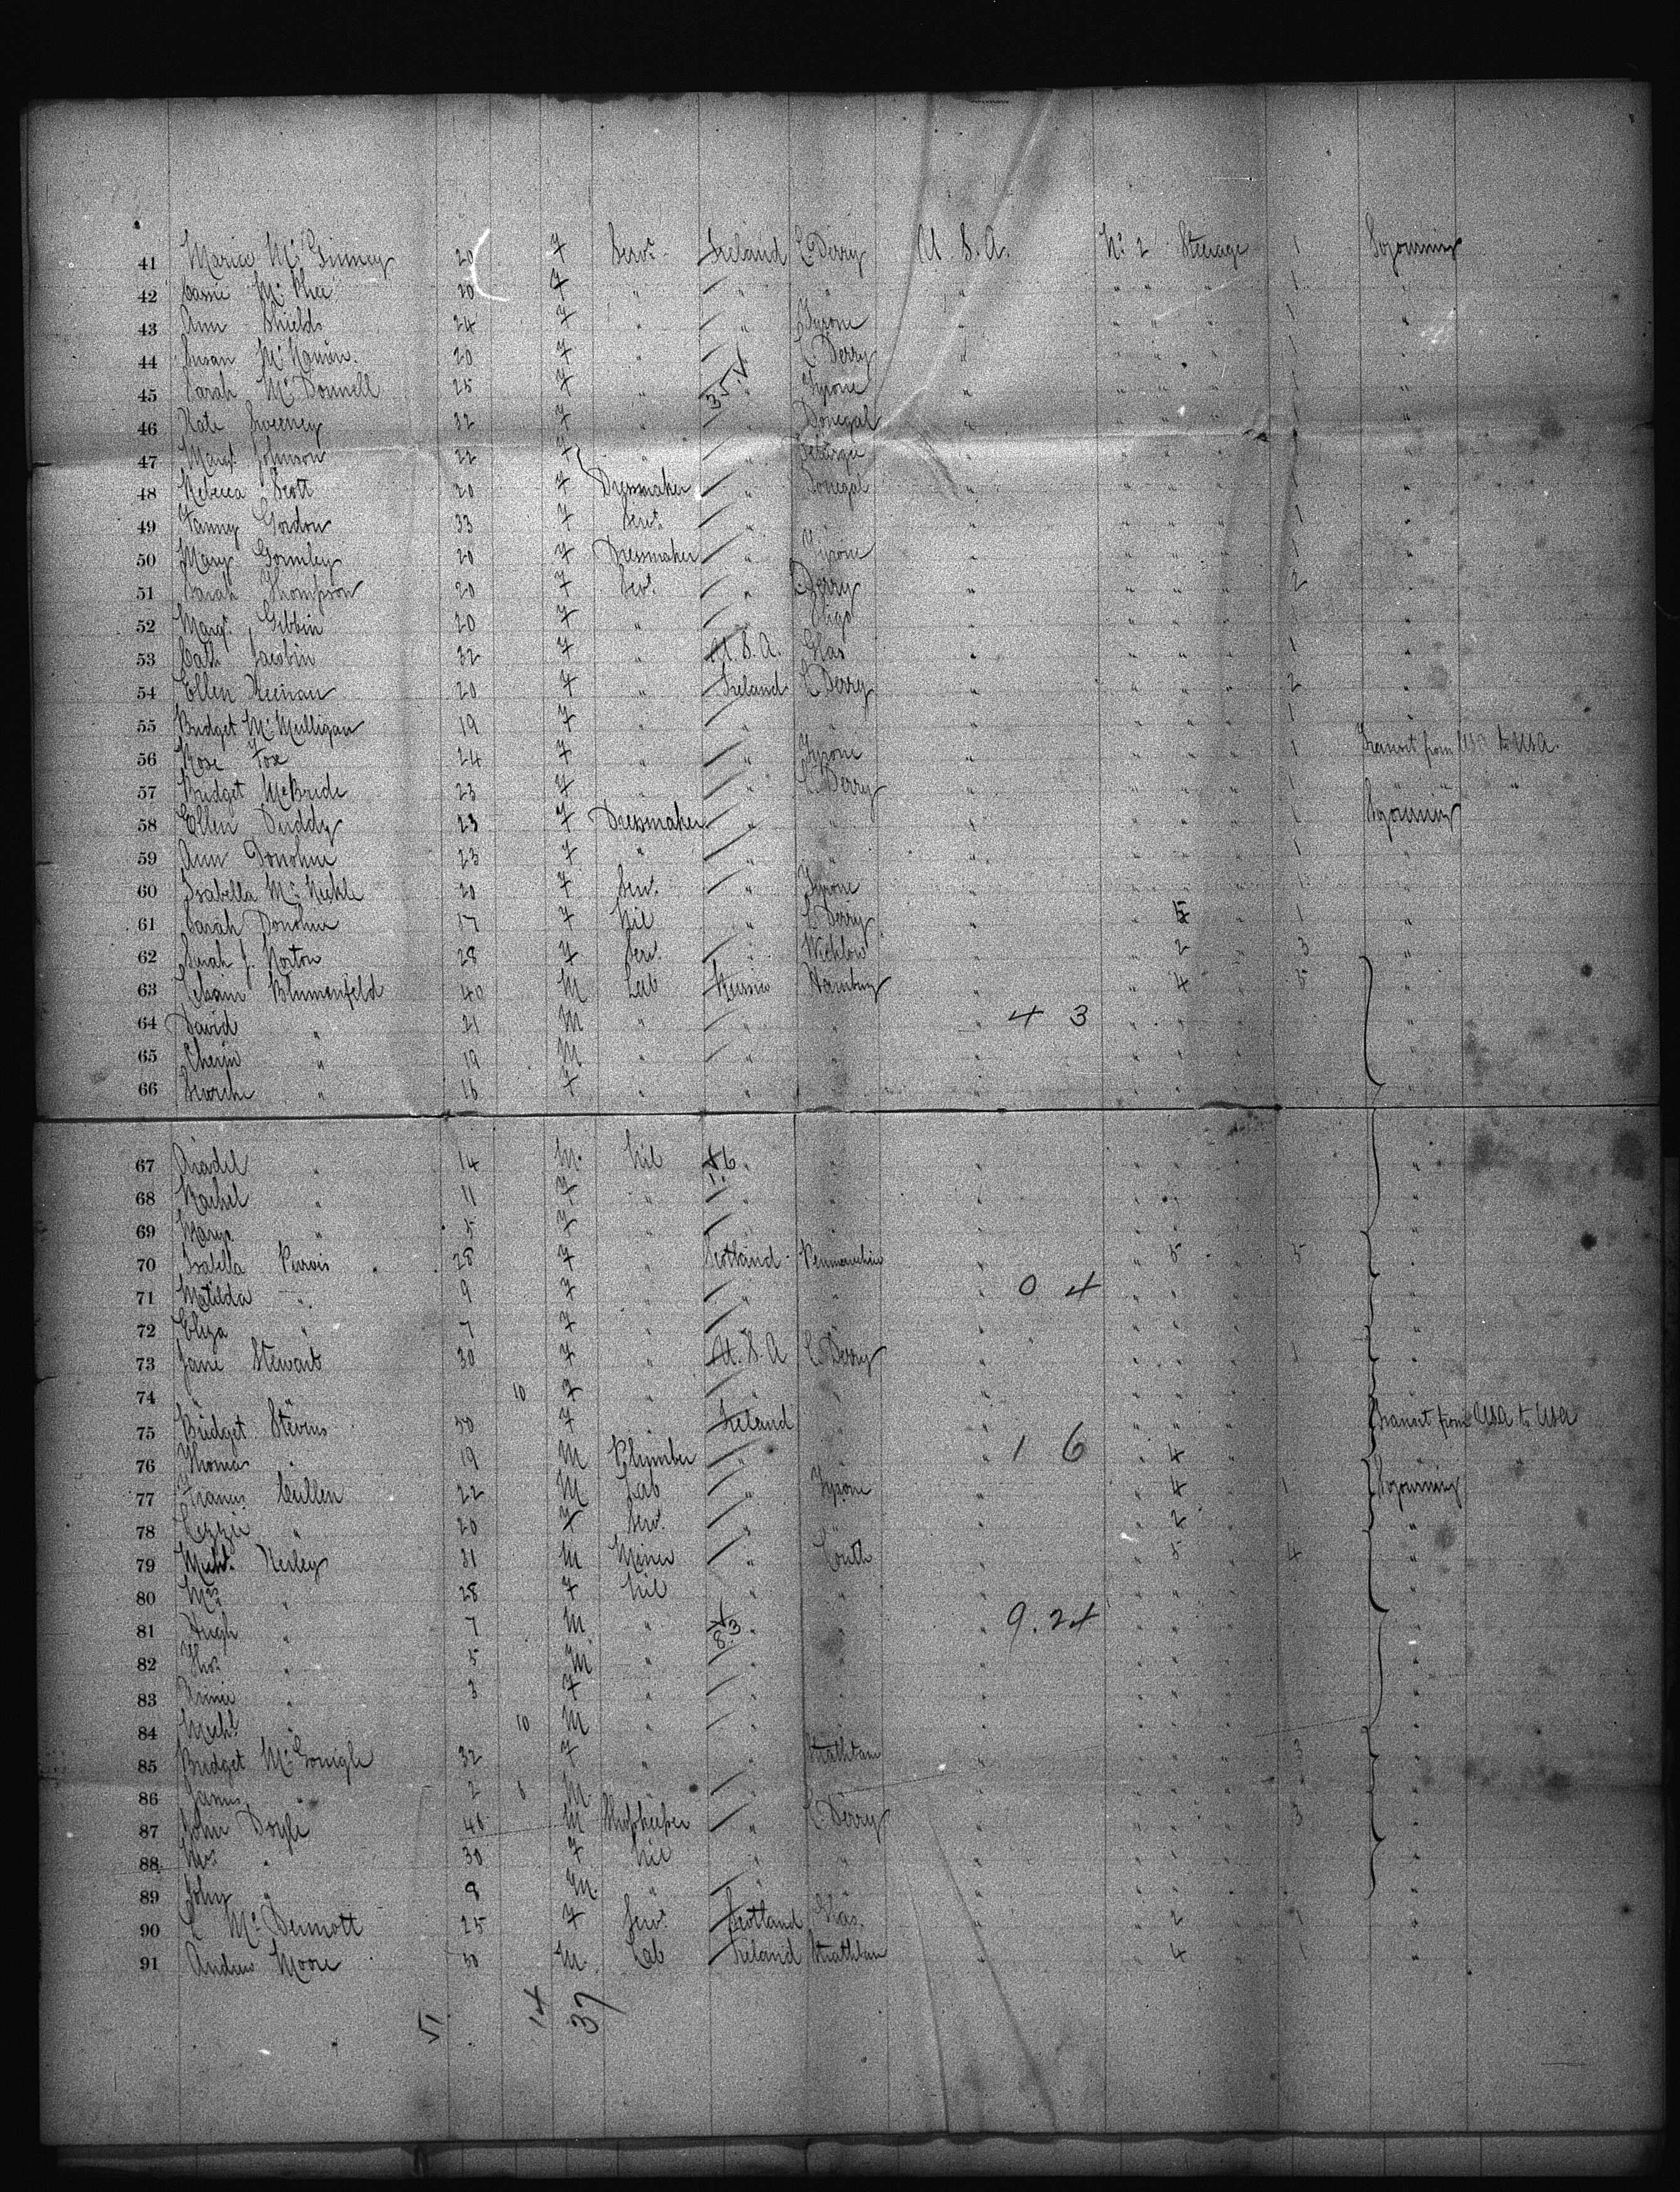 41 Maria McGinney 20 F Servt. Ireland L'Derry U.S.A. No. 2 Steerage 1 Sojourning
42 Cassie McPhee 20 F " " " " " " " 1 "
43 Ann Shields 24 F " " Tyrone " " " " 1 "
44 Susan 20 F " " L'Derry " " " " 1 "
45 Sarah McDonnell 25 F " 35 " Tyrone " " " " 1 "
46 Kate Sweeney 22 F " " Donegal " " " " 1 "
47 Margt. Johnson 22 F " " " " " " "
48 Rebecca Scott 20 F Dressmaker " Donegal " " " " 1 "
49 Fanny Gordon 33 F Servt. " " " " " " 1 "
50 Mary Gormley 20 F Dressmaker " Tyrone " " " " 1 "
51 Sarah Thompson 20 F Servt. " L'Derry " " " " 2 "
52 Margt. Gibbin 20 F " " Sligo " " " " "
53 Cath. Jacobin 32 F " U.S.A. Glas " " " " 1 "
54 Ellen Keenan 20 F " Ireland L'Derry " " " " 2 "
55 Bridget McMulligan 19 F " " " " " " " 1 "
56 Rose Fox 24 F " " Tyrone " " " " 1 Transit from USA to USA.
57 Bridget McBride 23 F " " L'Derry " " " " 1 " " "
58 Ellen Duddy 23 F Dressmaker " " " " " " 1 Sojourning
59 Ann Donohue 23 F " " " " " " " 1 "
60 Isabella 20 F Servt. " Tyrone " " " " 1 "
61 Sarah Donohue 17 F Nil " L'Derry " " " 1 "
62 Sarah J. Norton 28 F Servt. " Wicklow " " 2 " 3 "
63 Chaim Blumenfeld 40 M Lab Russia Hamburg " " 4 " 5 "
64 David " 21 M " " " " 4 3 " " " "
65 " 19 M " " " " " " " "
66 " 16 F " " " " " " " "
67 " 14 M. Nil 16 " " " " " " "
68 Rachel " 11 F " " " " " " " "
69 Mary " 5 F " " " " " " " "
70 Isabella Purvis 28 F " Scotland " " 5 " 5 "
71 Matilda " 9 F " " " " 0 4 " " " "
72 Eliza " 7 F " " " " " " " "
73 Jane Stewart 30 F " U.S.A L'Derry " " " " 1 "
74 " " 10 F " " " " " " " "
75 Bridget Stevens 50 F " Ireland " " " " " Transit from USA to USA
76 Thomas " 19 M Plumber " " " 1 6 " 4 " " "
77 Francis Cullen 22 M Lab " Tyrone " " 4 " 1 Sojourning
78 Lizzie " 20 F Servt. " " " " 2 " "
79 Michl. 31 M Miner " Louth " " 5 " 4 "
80 Mrs " 28 F Nil " " " " " " "
81 Hugh " 7 M " 8.3 " " " 9.24 " " " "
82 Thos. " 5 M " " " " " " " "
83 Annie " 3 F " " " " " " " "
84 Michl. " 10 M " " " " " " " "
85 Bridget McGonigle 32 F " " Strathbane " " " " 3 "
86 James " 2 8 M " " " " " " " "
87 John Doyle 46 M Shopkeeper " L'Derry " " " " 3 "
88 Mrs. " 30 F Nil " " " " " " "
89 John " 8 M. " " " " " " " "
90 C McDermott 25 F Servt. Scotland Glas. " " 2 " 1 "
91 Andrew Moore 50 M. Lab Ireland Strathbane " " 4 " 1 "
51 14 37